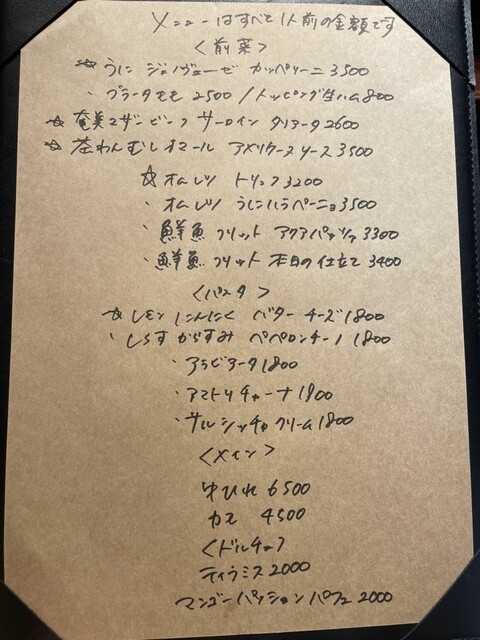 メニューはすべて1人前の金額です
<前菜>
☆うに ジェノヴェーゼ カッペリーニ 3500
・ブラータもも 2500 / トッピング生ハム800
☆奄美マザービーフ サーロイン タリアータ2600
☆茶わんむし オマール アメリケーヌソース 3500
☆オムレツ トリュフ3200
・オムレツ うにハラペーニョ3500
・鮮魚 フリット アクアパッツァ 3300
・鮮魚 フリット 本日の仕立て 3400
<パスタ>
☆レモン にんにく バター チーズ 1800
・しらす からすみ ペペロンチーノ 1800
・アラビアータ1800
・アマトリチャーナ 1800
・サルシッチャ クリーム1800
<メイン>
牛ひれ 6500
カモ 4500
<ドルチェ>
ティラミス2000
マンゴーパッションパフェ 2000